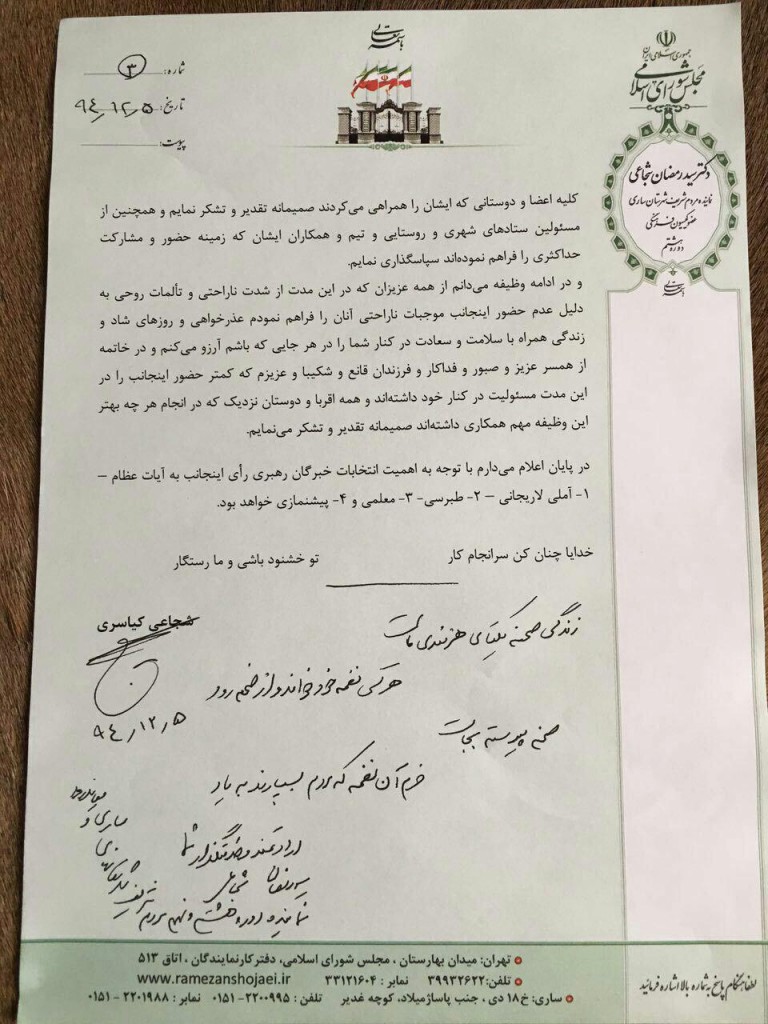 باسمه تعالی
جمهوری اسلامی ایران
مجلس شورای اسلامی
دکتر سید رمضان شجاعی
نماینده مردم شریف شهرستان ساری
عضو کمیسیون فرهنگی
دوره هشتم
باسمه تعالی
شماره: ۳
تاریخ: ۹۴/۱۲/۵
پیوست:
کلیه اعضا و دوستانی که ایشان را همراهی می‌کردند صمیمانه تقدیر و تشکر نمایم و همچنین از
مسئولین ستادهای شهری و روستایی و تیم و همکاران ایشان که زمینه حضور و مشارکت
حداکثری را فراهم نموده‌اند سپاسگذاری نمایم.
و در ادامه وظیفه می‌دانم از همه عزیزان که در این مدت از شدت ناراحتی و تألمات روحی به
دلیل عدم حضور اینجانب موجبات ناراحتی آنان را فراهم نمودم عذرخواهی و روزهای شاد و
زندگی همراه با سلامت و سعادت در کنار شما را در هر جایی که باشم آرزو می‌کنم و در خاتمه
از همسر عزیز و صبور و فداکار و فرزندان قانع و شکیبا و عزیزم که کمتر حضور اینجانب را در
این مدت مسئولیت در کنار خود داشته‌اند و همه اقربا و دوستان نزدیک که در انجام هر چه بهتر
این وظیفه مهم همکاری داشته‌اند صمیمانه تقدیر و تشکر می‌نمایم.
در پایان اعلام می‌دارم با توجه به اهمیت انتخابات خبرگان رهبری رأی اینجانب به آیات عظام –
۱- آملی لاریجانی – ۲- طبرسی- ۳- معلمی و ۴- پیشنمازی خواهد بود.
خدایا چنان کن سرانجام کار تو خشنود باشی و ما رستگار
شجاعی کیاسری
۹۴/۱۲/۵
زندگی صحنه یکتای هنرمندی ماست
هر کسی نغمه خود خواند و از صحنه رود
صحنه پیوسته بجاست
خرم آن نغمه که مردم بسپارند به یاد
ارادتمند و خدمتگذار شما
سید رمضان شجاعی
نماینده ادوار هشتم و نهم مردم شریف
ساری و
تهران: میدان بهارستان ، مجلس شورای اسلامی، دفترکارنمایندگان ، اتاق ۵۱۳
تلفن: ۳۹۹۳۲۶۲۲ نمابر : ۳۳۱۲۱۶۰۴ www.ramezanshojaei.ir
ساری: خ ۱۸ دی ، جنب پاساژمیلاد، کوچه غدیر تلفن : ۲۲۰۰۹۹۵-۰۱۵۱ نمابر : ۲۲۰۱۹۸۸-۰۱۵۱
لطفا هنگام پاسخ به شماره بالا اشاره فرمائید